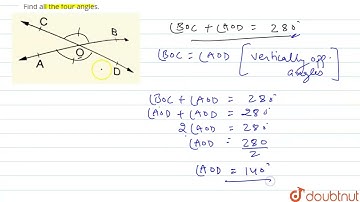 Find all the four angles.
C
B
O
A
D
∠BOC + ∠AOD = 280°
∠BOC = ∠AOD [vertically opp. angles]
∠BOC + ∠AOD = 280°
∠AOD + ∠AOD = 280°
2∠AOD = 280°
∠AOD = 280/2
∠AOD = 140°
doubtnut